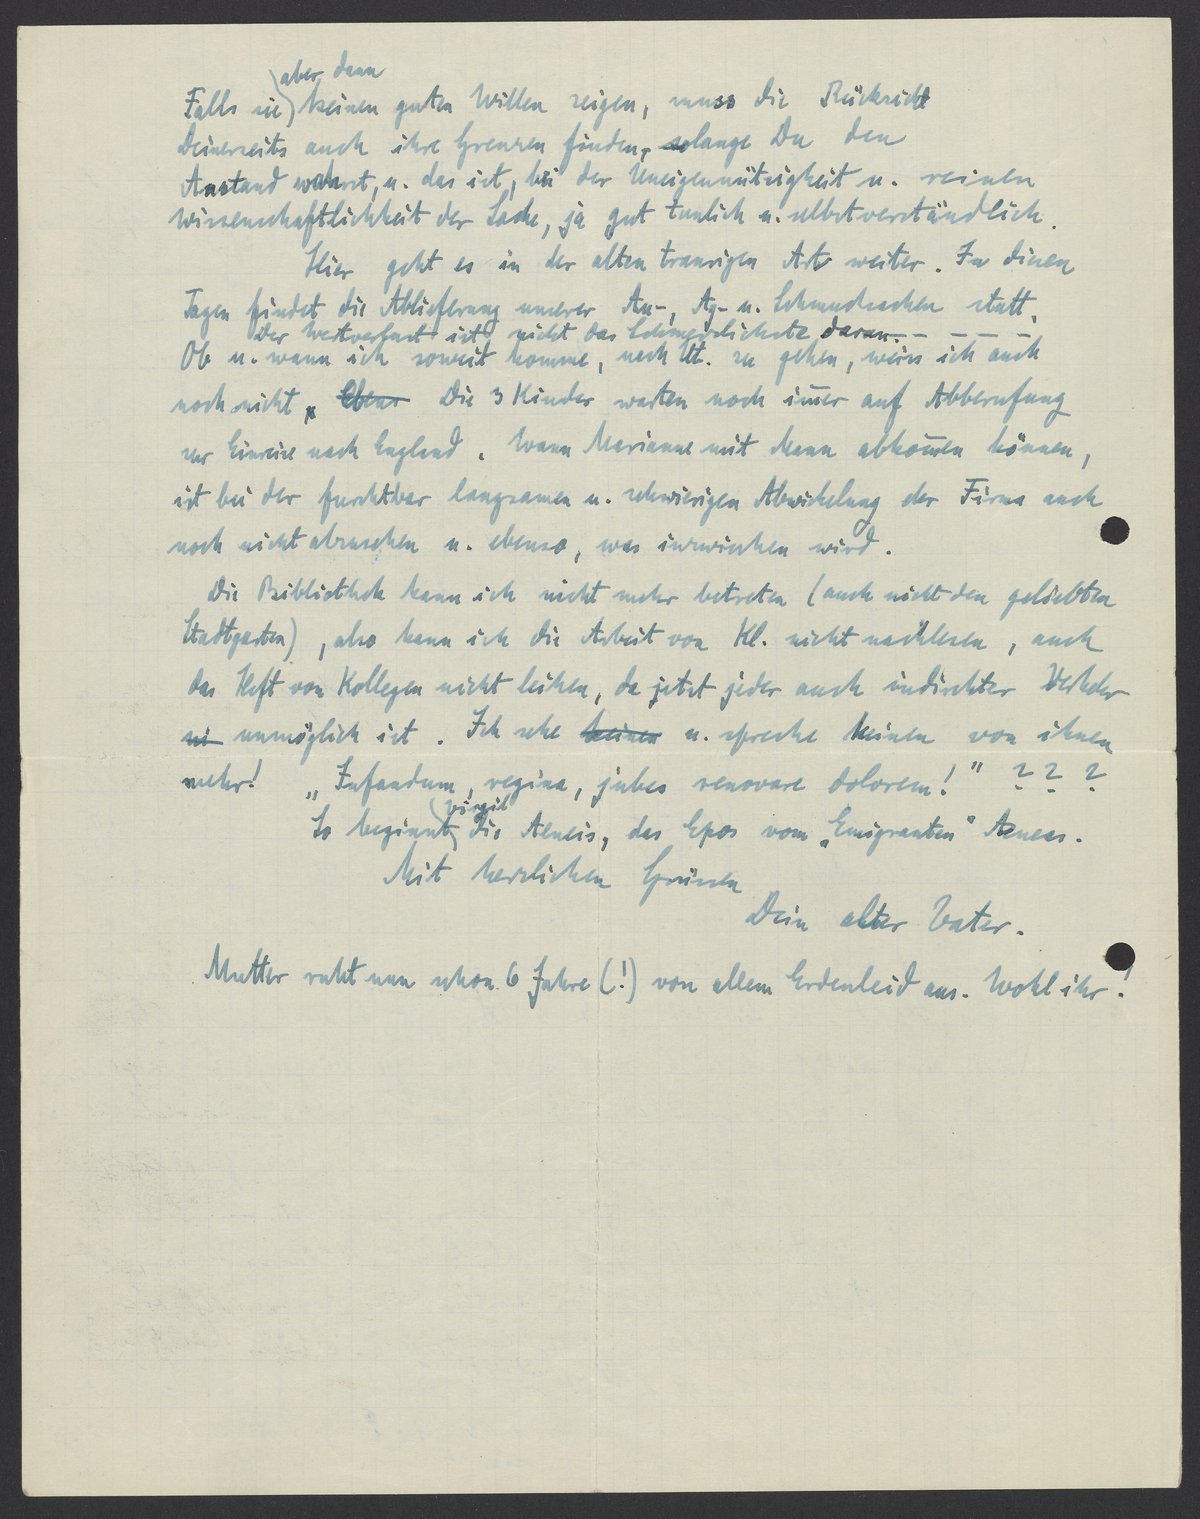 aber dann
Falls sie keinen guten Willen zeigen, muss die Rücksicht
Deinerseits auch ihre Grenzen finden, solange Du den
Anstand wahrst, u. das ist, bei der Uneigennützigkeit u. reinen
Wissenschaftlichkeit der Sache, ja gut tunlich u. selbstverständlich.
Hier geht es in der alten traurigen Art weiter. In diesen
Tagen findet die Ablieferung unserer Au-, Ag- u. Schmucksachen statt.
Der Wertverlust ist nicht das Schmerzlichste daran. – – – –
Ob u. wann ich soweit komme, nach Utt. zu gehen, weiss ich auch
noch nicht. Ebens Die 3 Kinder warten noch im̅er auf Abberufung
zur Einreise nach England. Wann Marianne mit Mann abkom̅en können,
ist bei der furchtbar langsamen u. schwierigen Abwickelung der Firma auch
noch nicht abzusehen u. ebenso, was inzwischen wird.
Die Bibliothek kann ich nicht mehr betreten (auch nicht den geliebten
Stadtgarten), also kann ich die Arbeit von Kl. nicht nachlesen, auch
das Heft von Kollegen nicht leihen, da jetzt jeder auch indirekter Verkehr
unmöglich ist. Ich sehe keinen u. spreche keinen von ihnen
mehr! „Infandum, regina, jubes renovare dolorem!" ? ? ?
Virgil
So beginnt die Aeneis, das Epos vom „Emigranten" Aeneas.
Mit herzlichen Grüssen
Dein alter Vater.
Mutter ruht nun schon 6 Jahre (!) von allem Erdenleid aus. Wohl ihr!